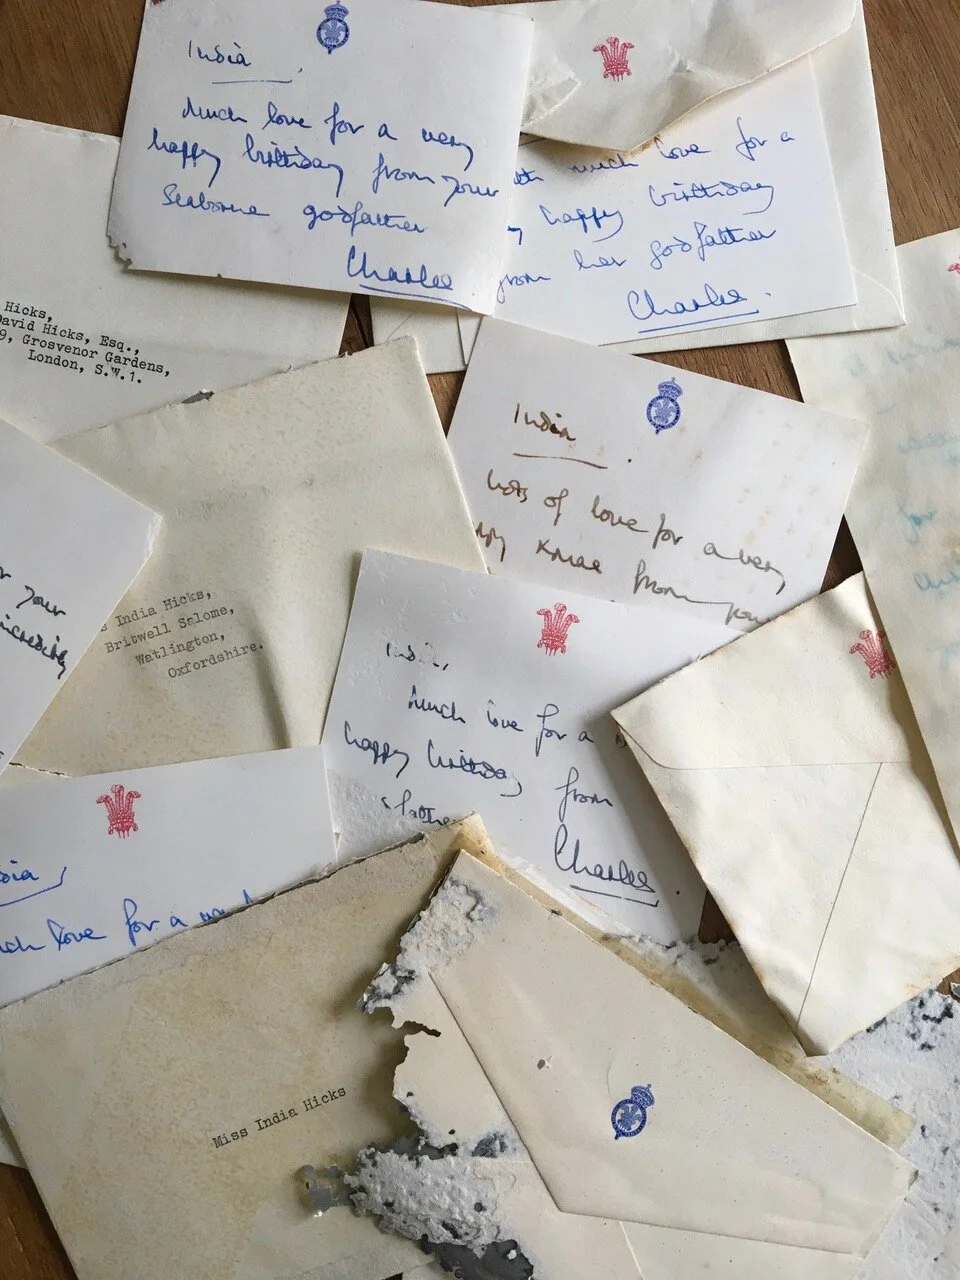 India
Much love for a very
happy birthday from your
Seaborne godfather
Charles
much love for a
happy birthday
from her godfather
Charles
Hicks,
David Hicks, Esq.,
9, Grosvenor Gardens,
London, S.W.1.
India
Lots of love for a very
Xmas from you
India Hicks,
Britwell Salome,
Watlington,
Oxfordshire.
your
incredibly
India,
Much love for a
happy birthday
from
Charles
love for a
Miss India Hicks